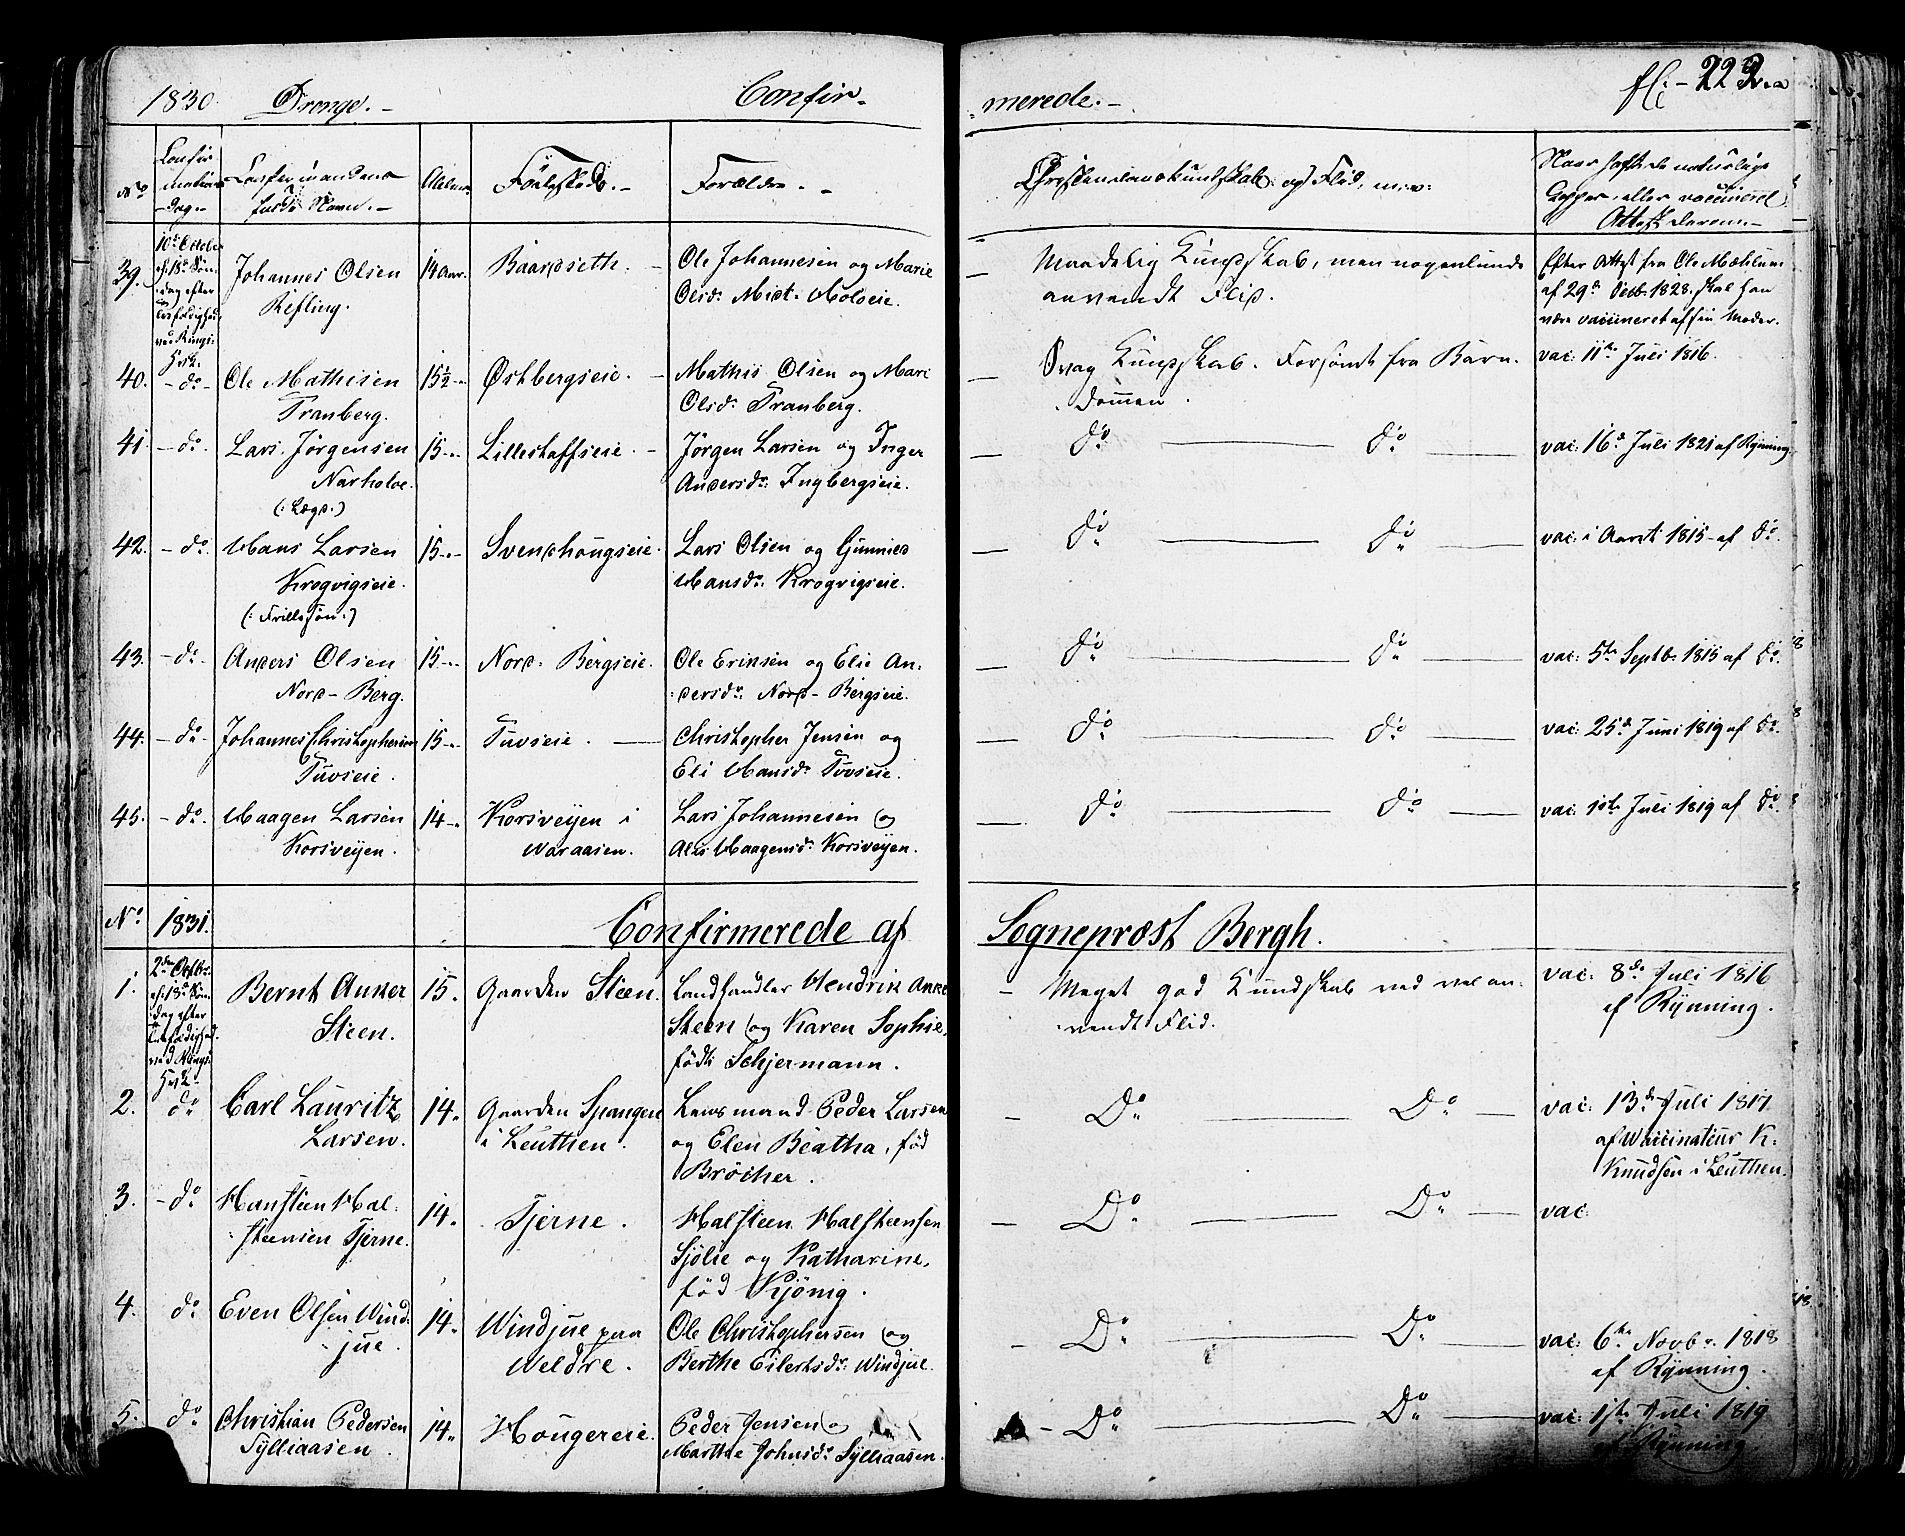 1830. Drenge. - Confir-
merede. -
fl: - 223
No
Confir
mations
Dag. -
Confirmandens
fulde Navn. -
Alder
Fødested. -
Forældre. -
Christendomskundskab og Flid, m.v:
Naar havt de naturlige
Kopper, eller vaccineret.
Attest derom. -
39. 10de October
ef: 18de Søn-
dag efter
Trefoldighed
ved Rings.
Krk.
Johannes Olsen
Refling.
14 Aar.
Baardseth. -
Ole Johannesen og Marie
Olsd:
- Maadelig Kundskab, men nogenlunde
anvendt Flid.
Efter Attest fra Ole Mæhlum
af 29de Decb. 1828. skal han
være vaccineret af sin Moder.
40. - do - Ole Mathisen
Tranberg.
15½ - Østbergseie. - Mathis Olsen og Mari
Olsdr. Tranberg.
- Svag Kundskab. Forsømt fra Barn-
dommen.
vac: 11te Juli 1816.
41. - do. Lars Jørgensen
Narholoe.
(: Lægd.)
15 - Lillestaffseie. - Jørgen Larsen og Inger
Andersdr: Ingbergseie.
- do - do - vac: 16de Juli 1821 af Rynning
42. - do. Hans Larsen
Krogvigseie.
(: Frillesøn:)
15 - Svendhougseie. Lars Olsen og Gunnied
Hansdr: Krogvigseie.
- do - do - vac: i Aaret 1815 - af do.
43. - do - Anders Olsen
Nord-Berg.
15 - Nord-Bergseie. Ole Eriksen og Elie An-
dersdr: Nord-Bergseie.
- do - do - vac: 5te Septb. 1815 af do.
44. - do - Johannes Christophersen
Tuvseie.
15 - Tuvseie. - Christopher Jensen og
Eli Hansdr. Tuvseie.
- do - do - vac: 25de Juni 1819 af do.
45. - do. Haagen Larsen
Korsveyen.
14 - Korsveyen i
Waraasen.
Lars Johannesen og
Haagensdr. Korsveyen.
- do - do - vac: 1ste Juli 1819 af do.
No 1831. Confirmerede af Sognepræst Bergh.
1. 2den Octbr.
ef: 18de Søn-
dag efter
Trefoldighed
ved Rings.
Krk.
Bernt Anker
Steen.
15. Gaarden Steen. Landhandler Hendrik Anker
Steen og Karen Sophie,
født Schjermann.
- Meget god Kundskab ved vel an-
vendt Flid.
vac: 8de Juli 1816
af Rynning.
2. do Carl Lauritz
Larsen.
14. Gaarden Spangen
i Leuthen.
Lensmand Peder Larsen
og Elen Beatha, fød
Brøcher.
- Do - Do - vac: 13de Juli 1817
af Vaccinateur K.
Knudsen i Leuthen.
3. - do Hansteen Hal-
steensen Tjerne.
14. Tjerne. Halsteen Halsteensen
Sjølie og Katharine,
fød Kjønig.
- Do - Do - vac:
4. do Even Olsen Wind-
jue.
14. Windjue paa
Weldre.
Ole Christophersen og
Berthe Eilertsdr: Windjue.
- Do - Do - vac: 6te Novbr. 1818
af Rynning.
5. do Christian Pedersen
Sylliaasen.
14. Hougereie. Peder Jensen og
Marthe Johnsdr Sylliaasen.
- Do - Do - vac: 1ste Juli 1819
af Rynning.